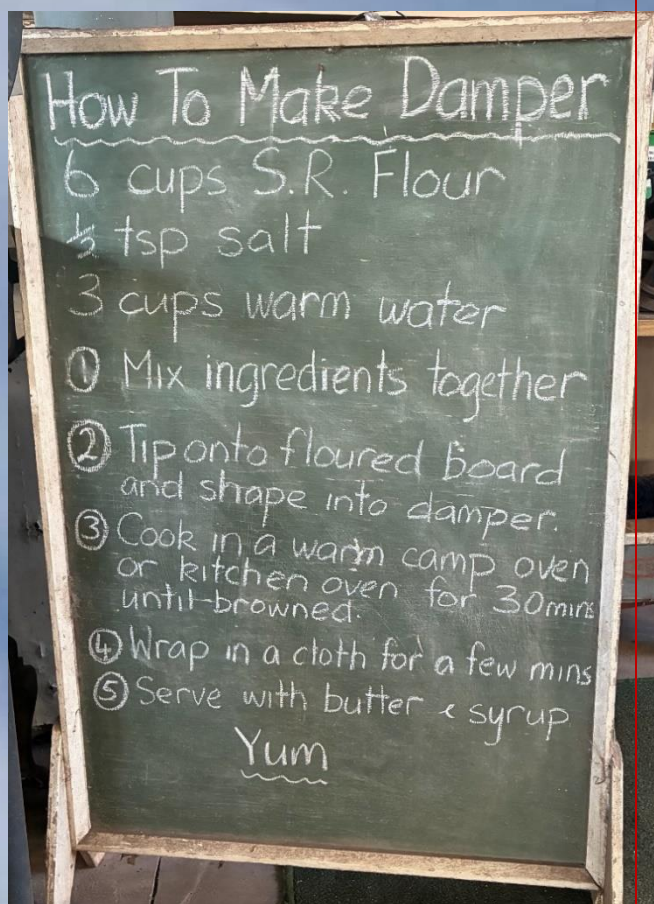 How To Make Damper
6 cups S.R. Flour
½ tsp salt
3 cups warm water
① Mix ingredients together
② Tip onto floured board
and shape into damper.
③ Cook in a warm camp oven
or kitchen oven for 30mins
until browned.
④ Wrap in a cloth for a few mins
⑤ Serve with butter & syrup
Yum